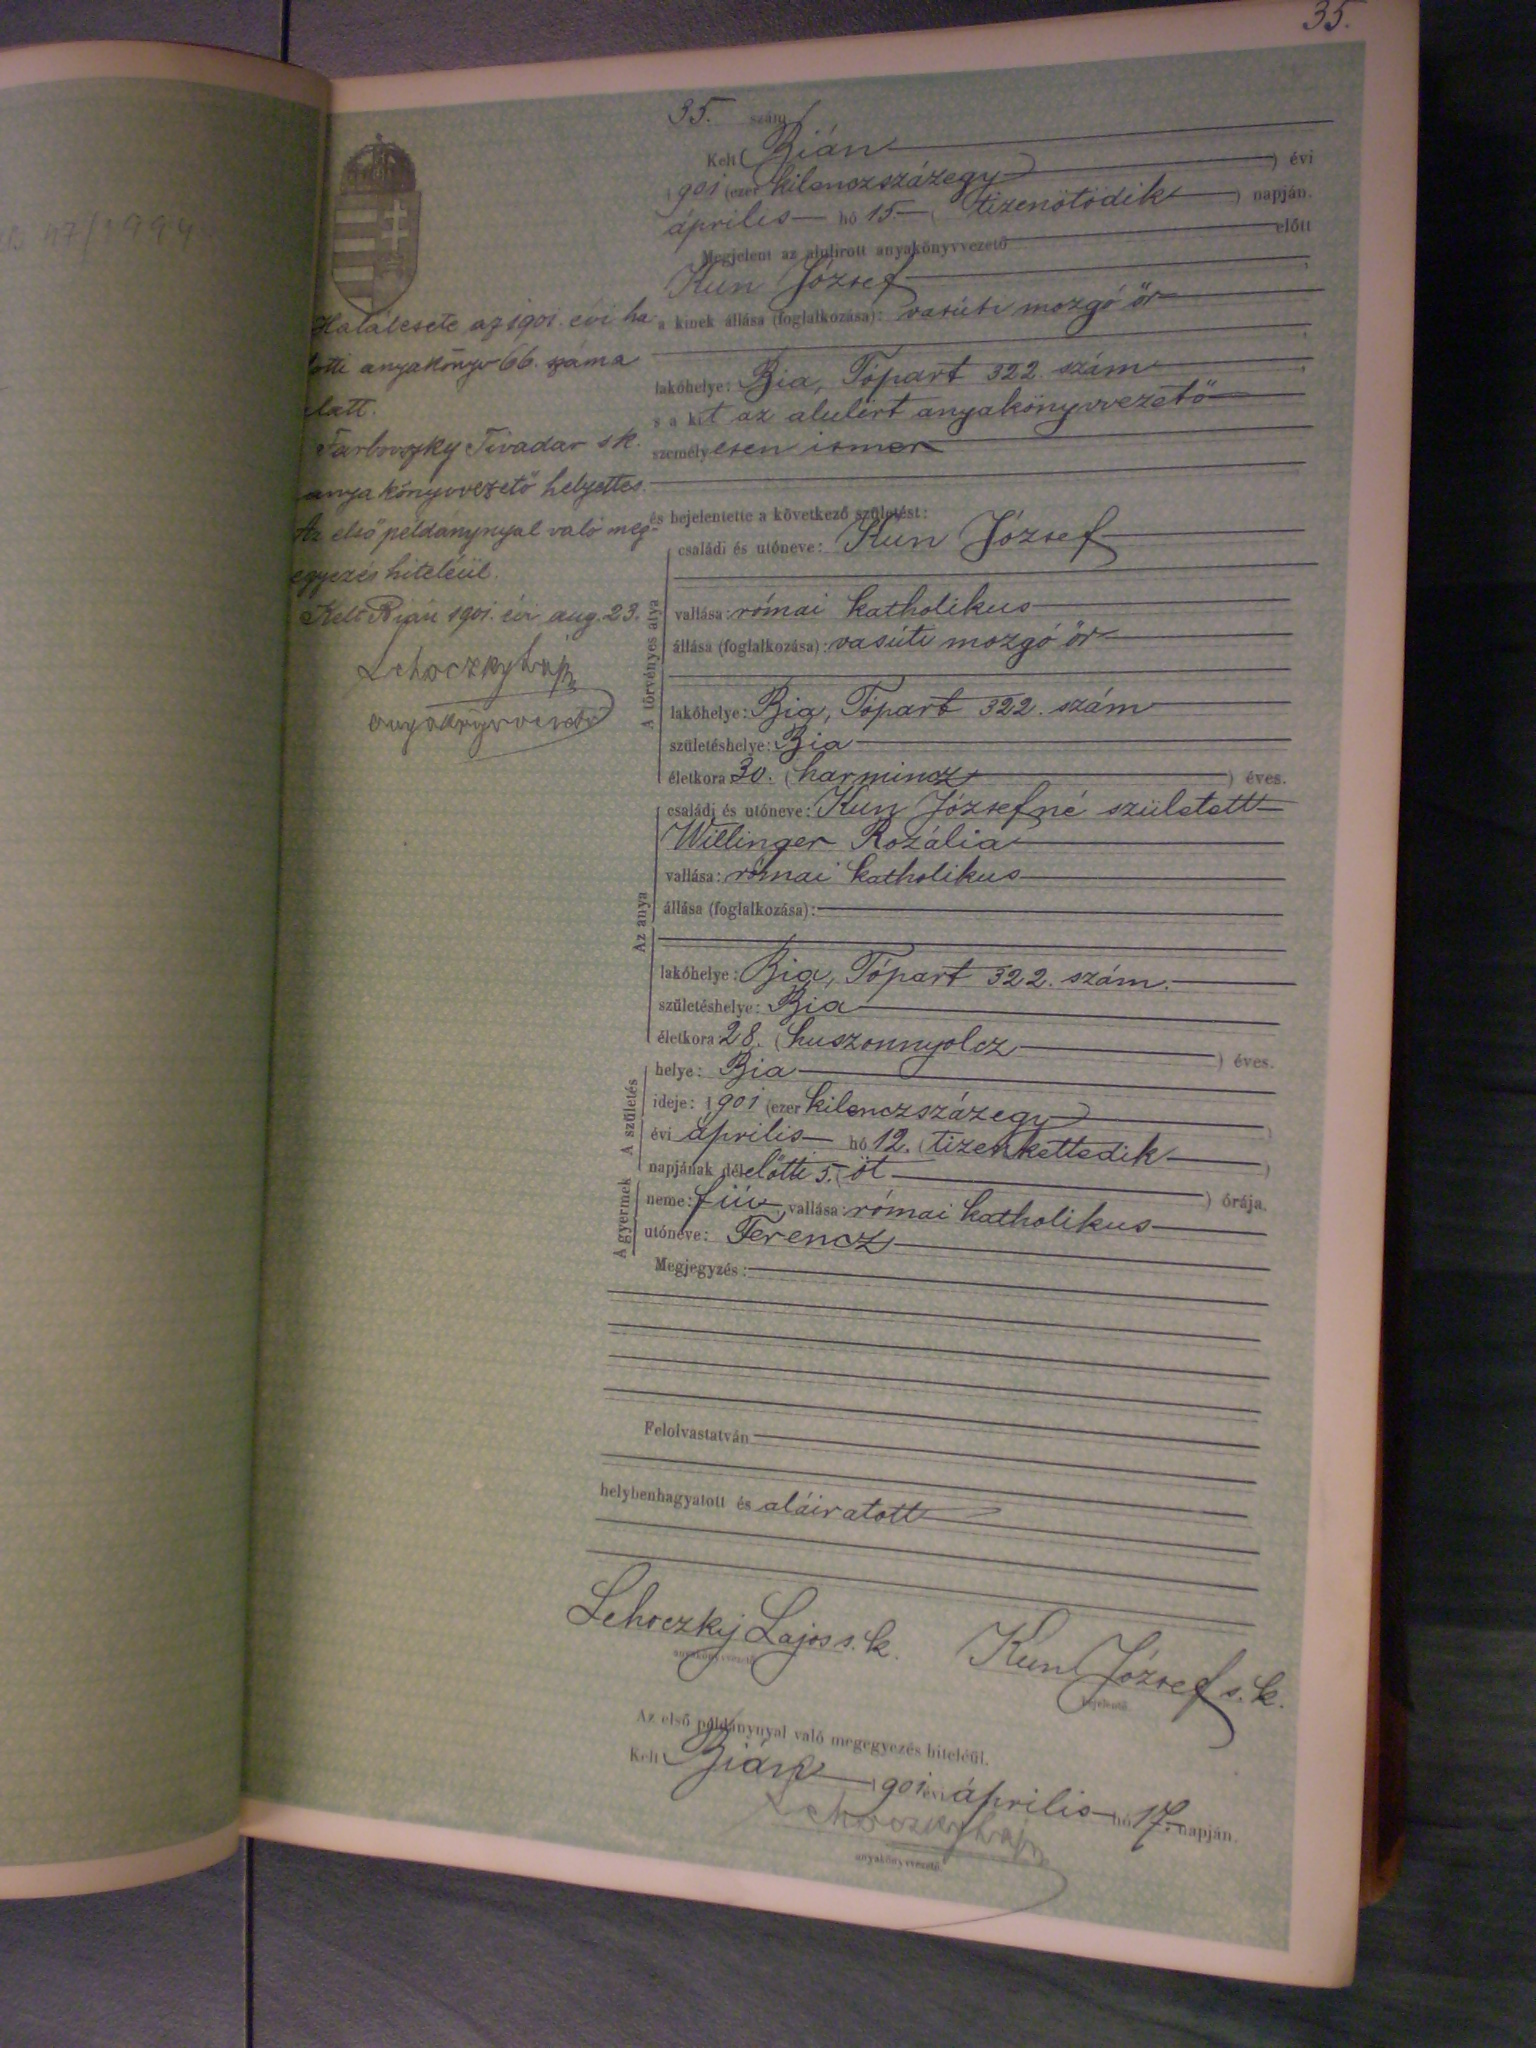 35.
47/1994
35. szám
Kelt Bián
1901 (ezer kilenczszázegy) évi
április hó 15 ( tizenötödik ) napján.
Megjelent az alulirott anyakönyvvezető előtt
Kun József
a kinek állása (foglalkozása): vasúti mozgó őr
lakóhelye: Bia, Tópart 322. szám
s a kit az alulírt anyakönyvvezető
személyesen ismer
és bejelentette a következő születést:
A törvényes atya
családi és utóneve: Kun József
vallása: római katholikus
állása (foglalkozása): vasúti mozgó őr
lakóhelye: Bia, Tópart 322. szám
születéshelye: Bia
életkora 30. (harmincz) éves.
Az anya
családi és utóneve: Kun Józsefné született
Willinger Rozália
vallása: római katholikus
állása (foglalkozása):
lakóhelye: Bia, Tópart 322. szám.
születéshelye: Bia
életkora 28. (huszonnyolcz ) éves.
A születés
helye: Bia
ideje: 1901 (ezer kilenczszázegy )
évi április hó 12. (tizenkettedik )
napjának délelőtti 5. (öt ) órája.
A gyermek
neme: fiú, vallása: római katholikus
utóneve: Ferencz
Megjegyzés:
Felolvastatván
helybenhagyatott és aláiratott
Lehoczky Lajos s. k. Kun József s. k.
anyakönyvvezető bejelentő
Az első példánynyal való megegyezés hiteléül.
Kelt Bián 1901 évi április hó 17. napján.
Lehoczky Lajos
anyakönyvvezető.
Halálesete az 1901. évi ha
lotti anyakönyv 66. száma
alatt.
Farbovszky Tivadar s k.
anyakönyvvezető helyettes.
Az első példánynyal való meg-
egyezés hiteléül.
Kelt Bián 1901. évi aug. 23.
Lehoczky Lajos
anyakönyvvezető